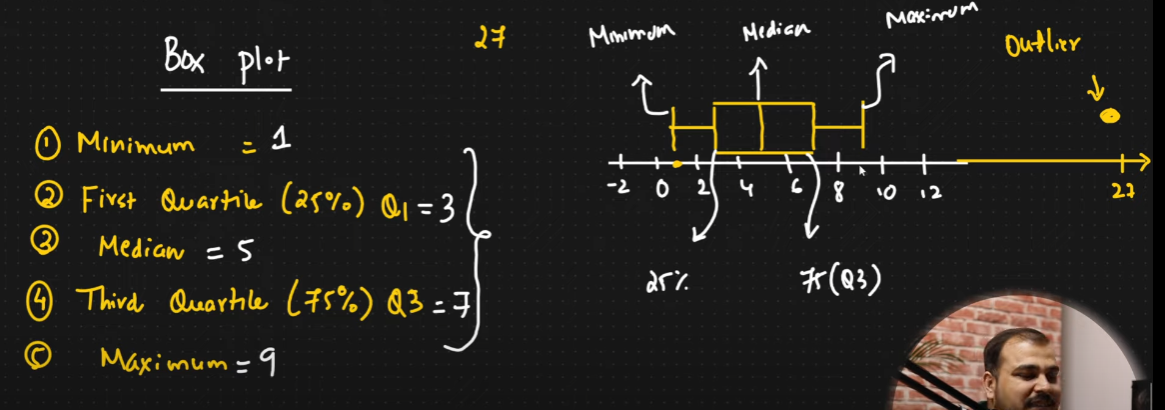 Box plot
① Minimum = 1
② First Quartile (25%) Q1 = 3
③ Median = 5
④ Third Quartile (75%) Q3 = 7
⑤ Maximum = 9
27
Minimum
Median
Maximum
Outlier
-2 0 2 4 6 8 10 12 27
25%
75 (Q3)